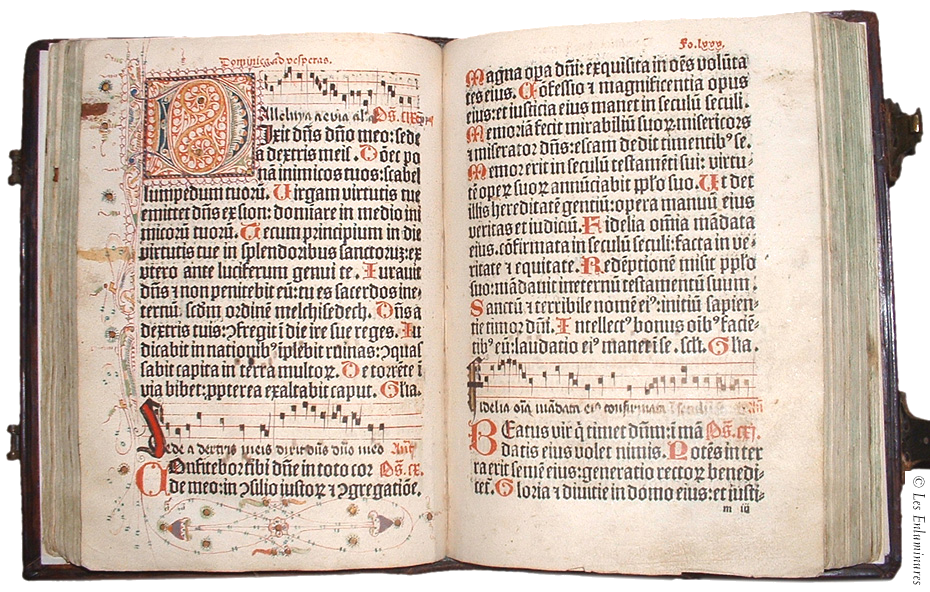 Dominica ad vesperas.
Alleluya aevia al'a Ps. cix
Dixit dn̄s dn̄o meo: sede
a dextris meis. Dōec po
nā inimicos tuos: scabel
lum pedum tuorū. Uirgam virtutis tue
emittet dn̄s ex sion: domīare in medio ini
micorū tuorū. Tecum principium in die
virtutis tue in splendoribus sanctorū: ex
vtero ante luciferum genui te. Iurauit
dn̄s ⁊ non penitebit eū: tu es sacerdos ine⸗
ternū scd̄m ordinē melchisedech. Dn̄s a
dextris tuis: ꝯfregit ī die ire sue reges. Iu
dicabit in nationibꝰ īplebit ruinas: ꝯquas
sabit capita in terra multoꝝ. De torrēte ī
via bibet: ꝓpterea exaltabit caput. Gl̄ia.
Sede a dextris meis dixit dn̄s dn̄o meo Añ
Onfitebor tibi dn̄e in toto cor Ps. cx.
de meo: in ꝯsilio iustoꝝ ⁊ ꝯgregatiōe.
Fo. lxxx.
Magna oꝑa dn̄i: exquisita in oēs volūta
tes eius. Cōfessio ⁊ magnificentia opus
eius: et iusticia eius manet in seculū seculi.
Memoriā fecit mirabiliū suoꝝ misericors
⁊ miserator dn̄s: escam dedit timentibꝰ se.
Memor erit in seculū testamēti sui: virtu⸗
tē operꝝ suoꝝ annūciabit ppl̄o suo. Ut det
illis hereditatē gentiū: opera manuū eius
veritas et iudiciū. Fidelia om̄ia mādata
eius. cōfirmata in seculū seculi: facta in ve⸗
ritate ⁊ equitate. Redēptionē misit ppl̄o
suo: mādauit in eternū testamentū suum.
Sanctū ⁊ terribile nomē eiꝰ: initiū sapien⸗
tie timor dn̄i. Intellectꝰ bonus oībꝰ faciē⸗
tibꝰ eū: laudatio eiꝰ manet ī se. scl̄i. Gl̄ia.
Fidelia oīa mādata eiꝰ confirmata ī seculū seculi Añ
Beatus vir q̄ timet dn̄um: ī mā Ps. cxj.
datis eius volet nimis. Potēs in ter
ra erit semē eius: generatio rectoꝝ benedi
cet. Gloria ⁊ diuitie in domo eius: et iusti⸗
m iii
© Les Enluminures